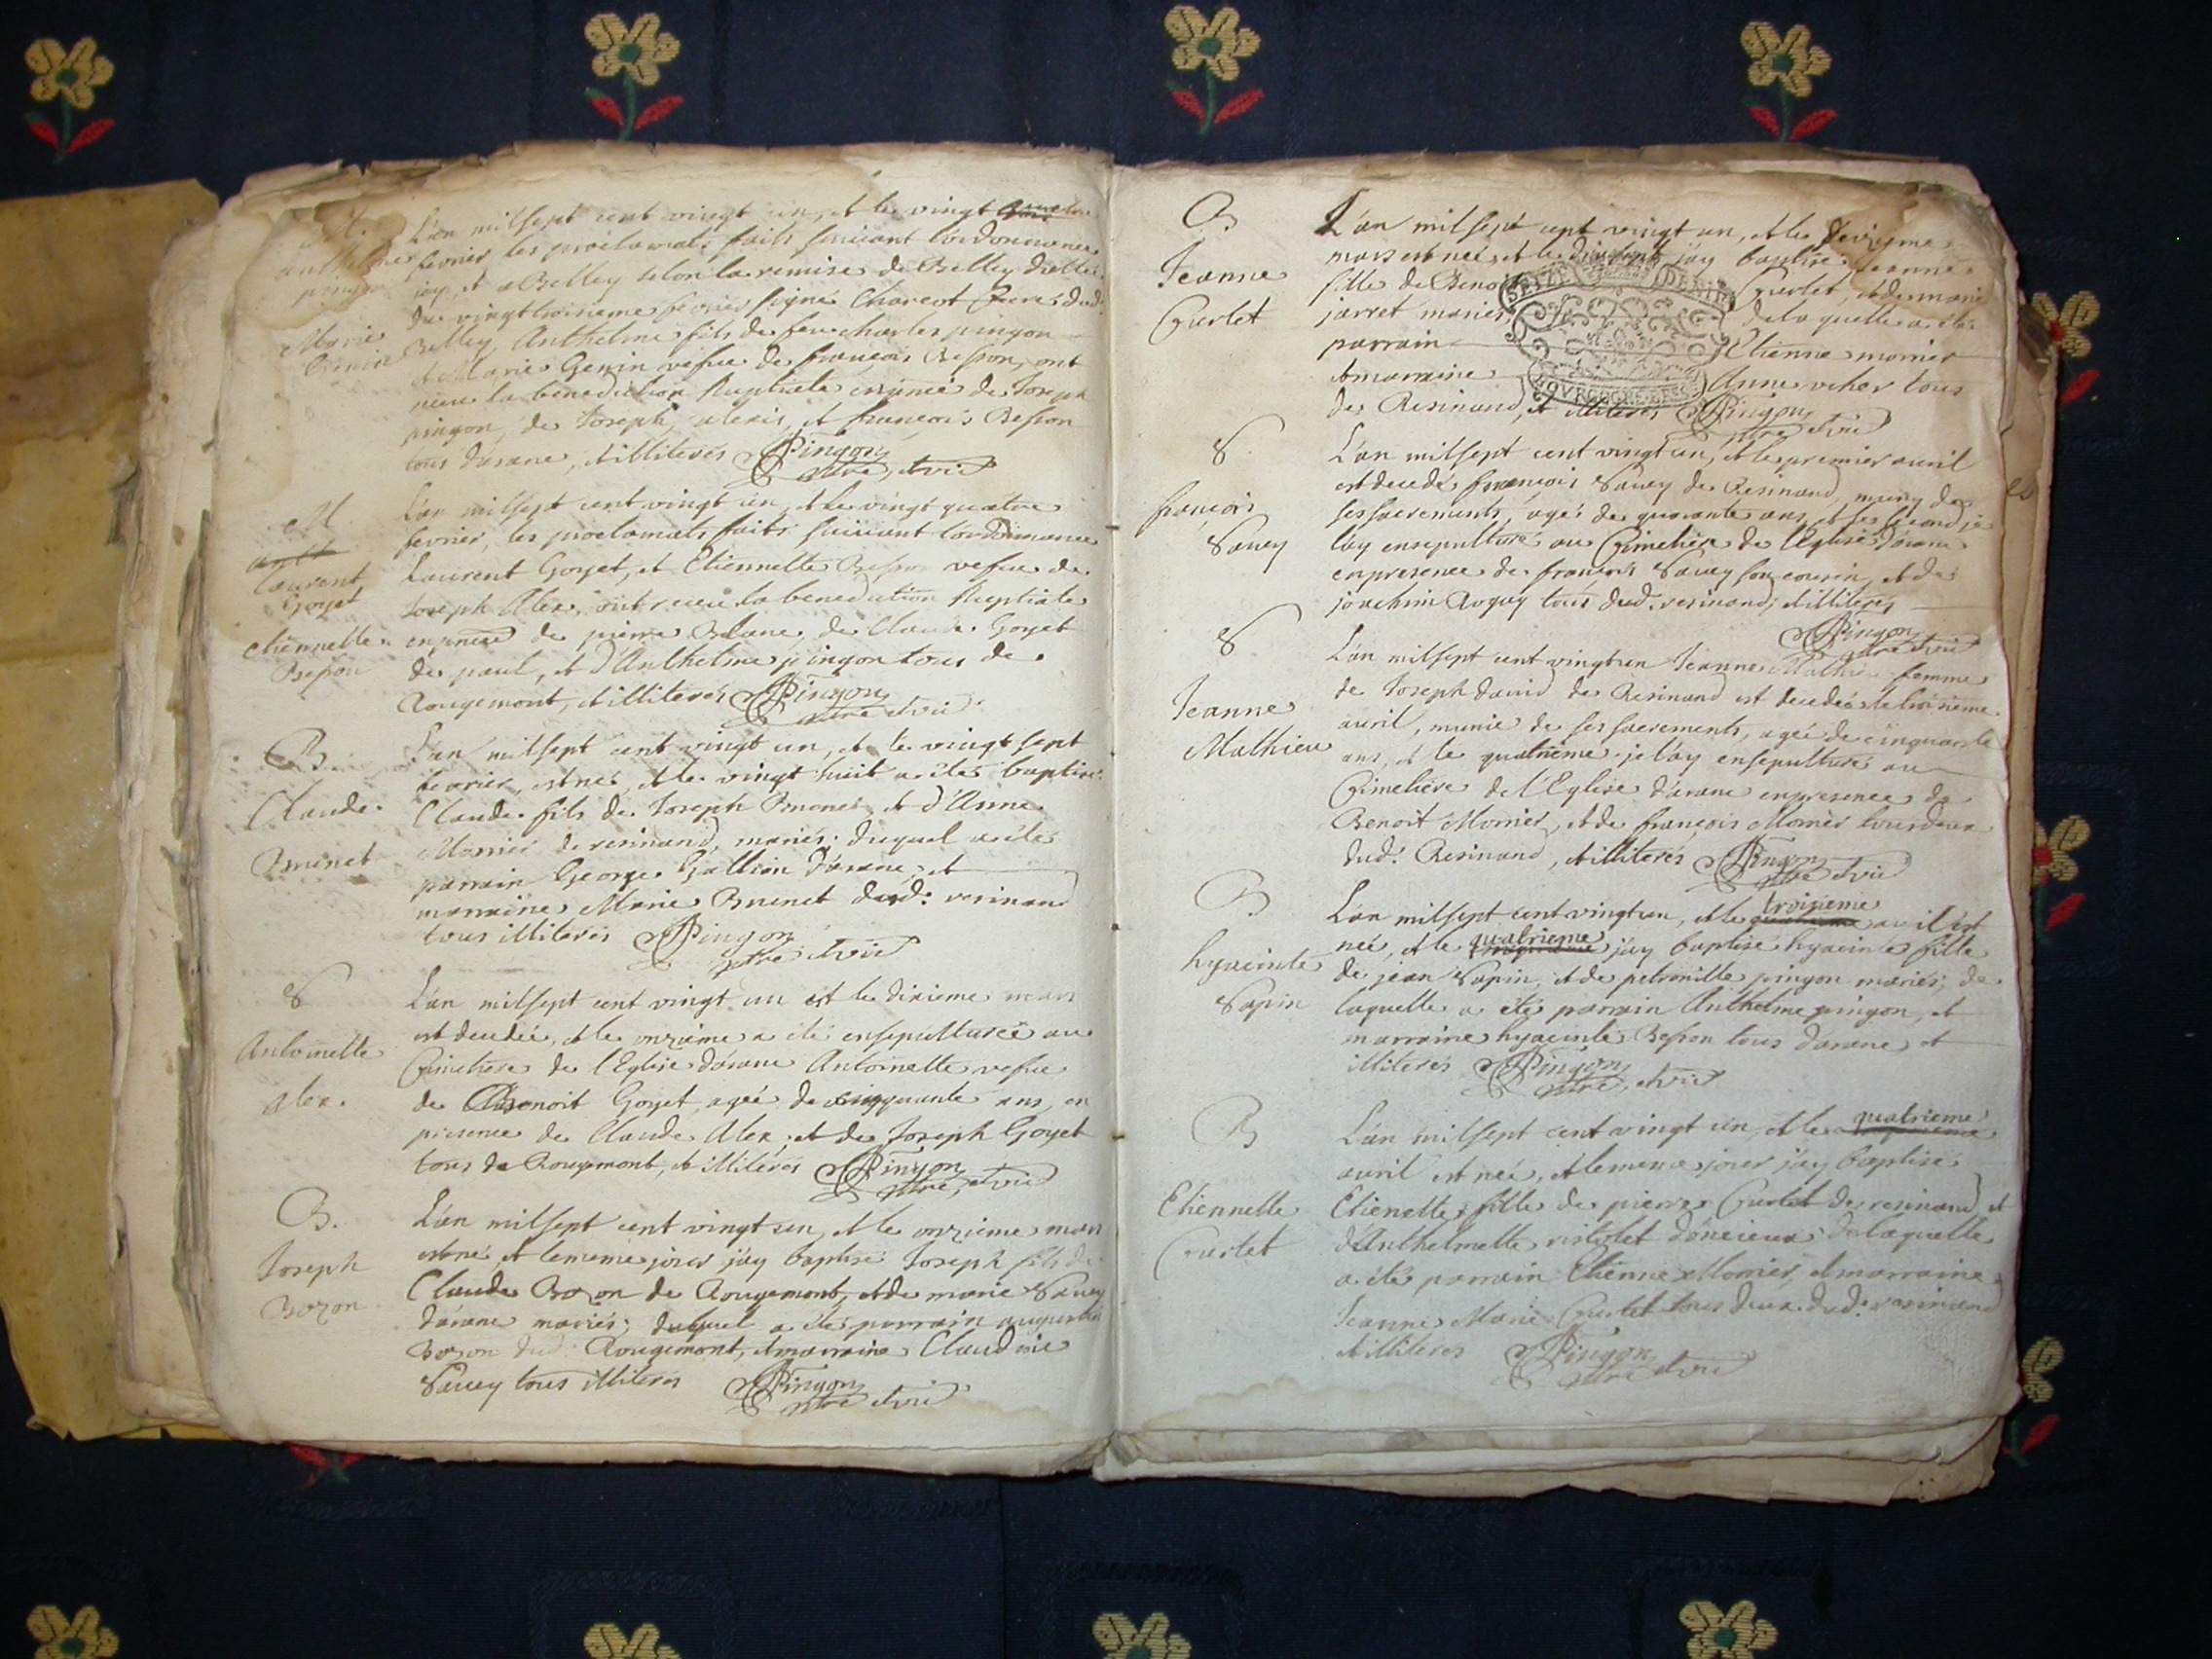 M.
anthelme
pingon
Marie
Genin
L'an mil sept cent vingt un, et le vingt quatre
fevrier les proclamats faits suivant l'ordonnance
icy, et a Belley selon la remise de Belley
du vingt troisieme fevrier signé Charcot Curé dud:
Belley, Anthelme fils de feu charles pingon
et Marie Genin vefue de françois Besson, ont
receu la benediction Nuptiale en pnce de Joseph
pingon, de Joseph, alexis, et françois Besson
tous d'arane, et illiterés Pingon
ptre et vic
M.
Laurent
Goyet
etiennette
Besson
L'an mil sept cent vingt un, et le vingt quatre
fevrier, les proclamats faits suiuant l'ordonnance
Laurent Goyet, et Etiennette Besson vefue de
Joseph Alex, ont receu la benediction Nuptiale
en pnce de pierre Blanc, de Claude Goyet
de paul, et d'Anthelme pingon tous de
Rougemont, et illiterés Pingon
ptre et vic
B.
Claude
Brunet
L'an mil sept cent vingt un, et le vingt sept
fevrier, est né, et le vingt huit a été baptisé
Claude fils de Joseph Brunet et d'Anne
Monier de resinand, mariés; duquel a été
parrain George Gallion d'arane, et
marraine Marie Brunet dud: resinand
tous illiterés Pingon
ptre et vic
S
Antoinette
alex.
L'an mil sept cent vingt un et le dixieme mars
est decedée, et le onzieme a été ensepulturée au
Cimetiere de l'Eglise d'arane Antoinette vefue
de Benoit Goyet, agée de cinquante ans, en
presence de Claude Alex, et de Joseph Goyet
tous de Rougemont, et illiterés Pingon
ptre, et vic
B.
Joseph
Bozon
L'an mil sept cent vingt un, et le onzieme mars
est né, et le meme jour j'ay baptisé Joseph fils de
Claude Bozon de Rougemont, et de marie Savey
d'arane mariés; duquel a été parrain augustin
Bozon dud: Rougemont, et marraine Claudine
Savey tous illiterés Pingon
ptre et vic
B
Jeanne
Curtet
L'an mil sept cent vingt un, et le
mars est née, et le j'ay baptisé Jeanne
fille de Benoit Curtet, et de marie
jarret mariés, de laquelle a été
parrain Etienne monier
et marraine Anne
de Resinand, et illiterés Pingon
ptre et vic
S.
françois
Savey
L'an mil sept cent vingt un, et le premier avril
est decedé françois Savey de Resinand, muny de
ses sacrements, agé de quarante ans, et le second je
l'ay ensepulturé au Cimetiere de l'Eglise d'arane
en presence de françois Savey son cousin, et de
joachim tous dud. resinand; et illiterés
Pingon
ptre et vic
S
Jeanne
Mathieu
L'an mil sept cent vingt un Jeanne Mathieu femme
de Joseph david de Resinand est decedée le troisieme
avril, munie de ses sacrements, agée de cinquante
ans, et le quatrieme je l'ay ensepulturé au
Cimetiere de l'Eglise d'arane en presence de
Benoit Monier, et de françois Monier tous deux
dud: Resinand, et illiterés Pingon
ptre et vic
B
hyacinte
Sapin
L'an mil sept cent vingt un, et le troisieme avril est
née, et le quatrieme j'ay baptisé hyacinte fille
de jean Sapin, et de petronille pingon mariés; de
laquelle a été parrain Anthelme pingon, et
marraine hyacinte Besson tous d'arane, et
illiterés Pingon
ptre, et vic
B
Etiennette
Curtet
L'an mil sept cent vingt un, et le quatrieme
avril est née, et le meme jour j'ay baptisé
Etienette fille de pierre Curtet de resinand, et
d'Anthelmette d'oncieux; de laquelle
a été parrain Etienne Monier, et marraine
Jeanne Marie Curtet tous deux dud: resinand
et illiterés Pingon
ptre et vic